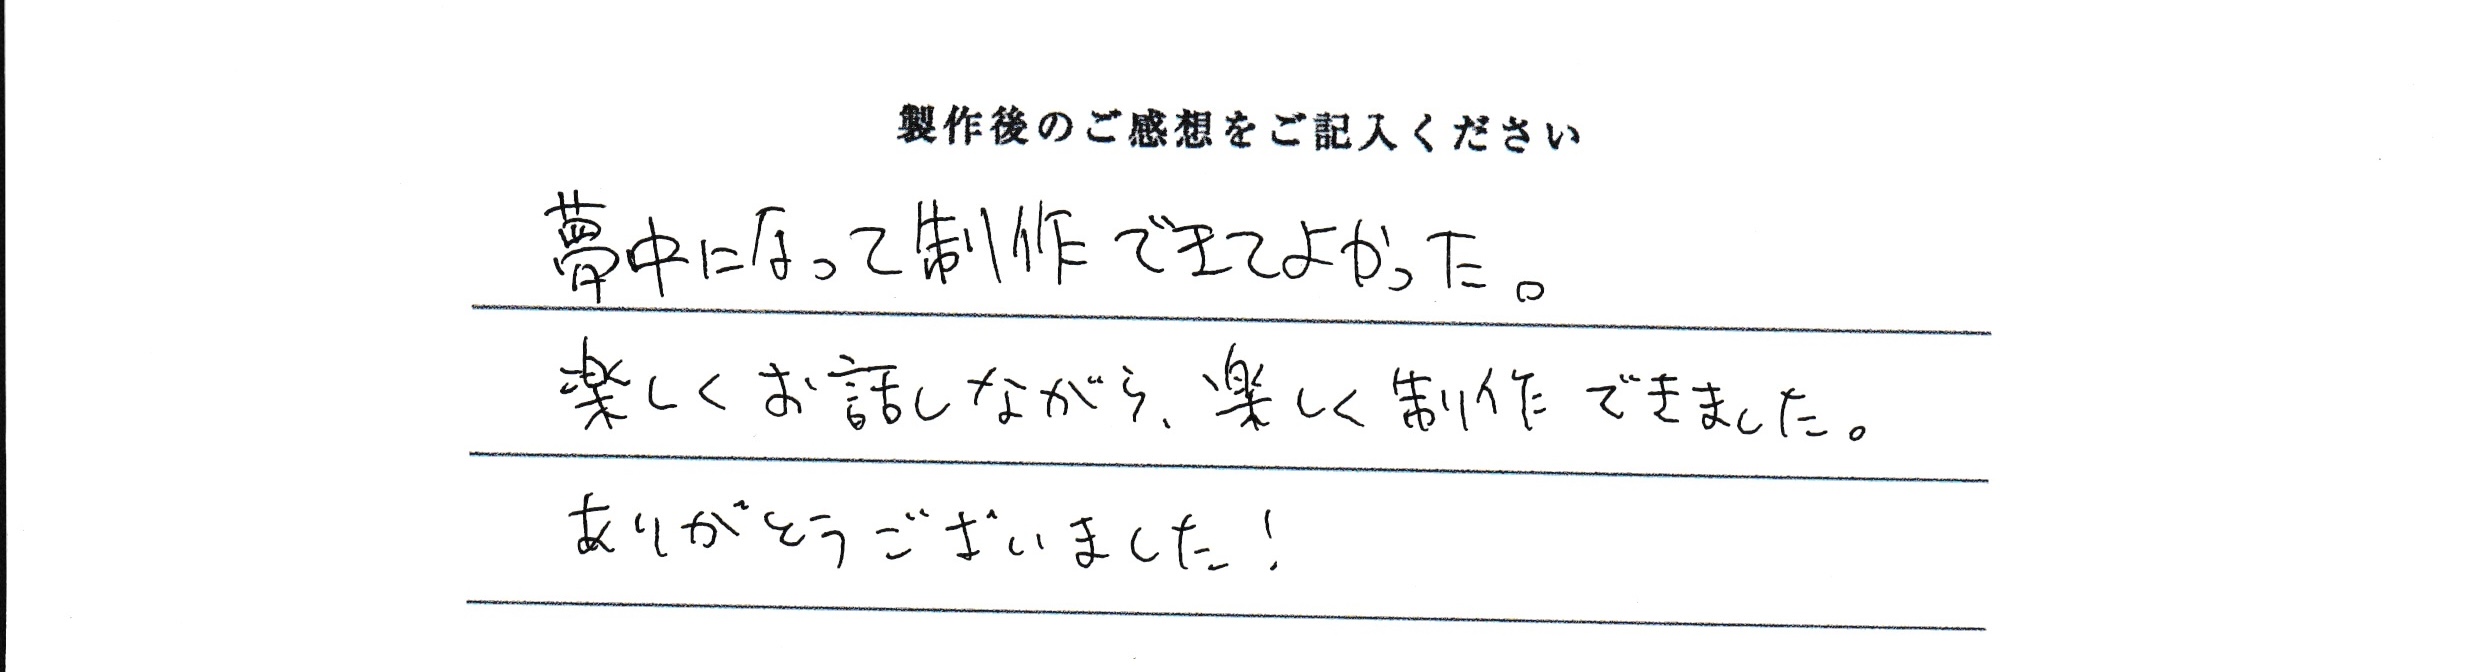 製作後のご感想をご記入ください
夢中になって制作できてよかった。
楽しくお話しながら、楽しく制作できました。
ありがとうございました!